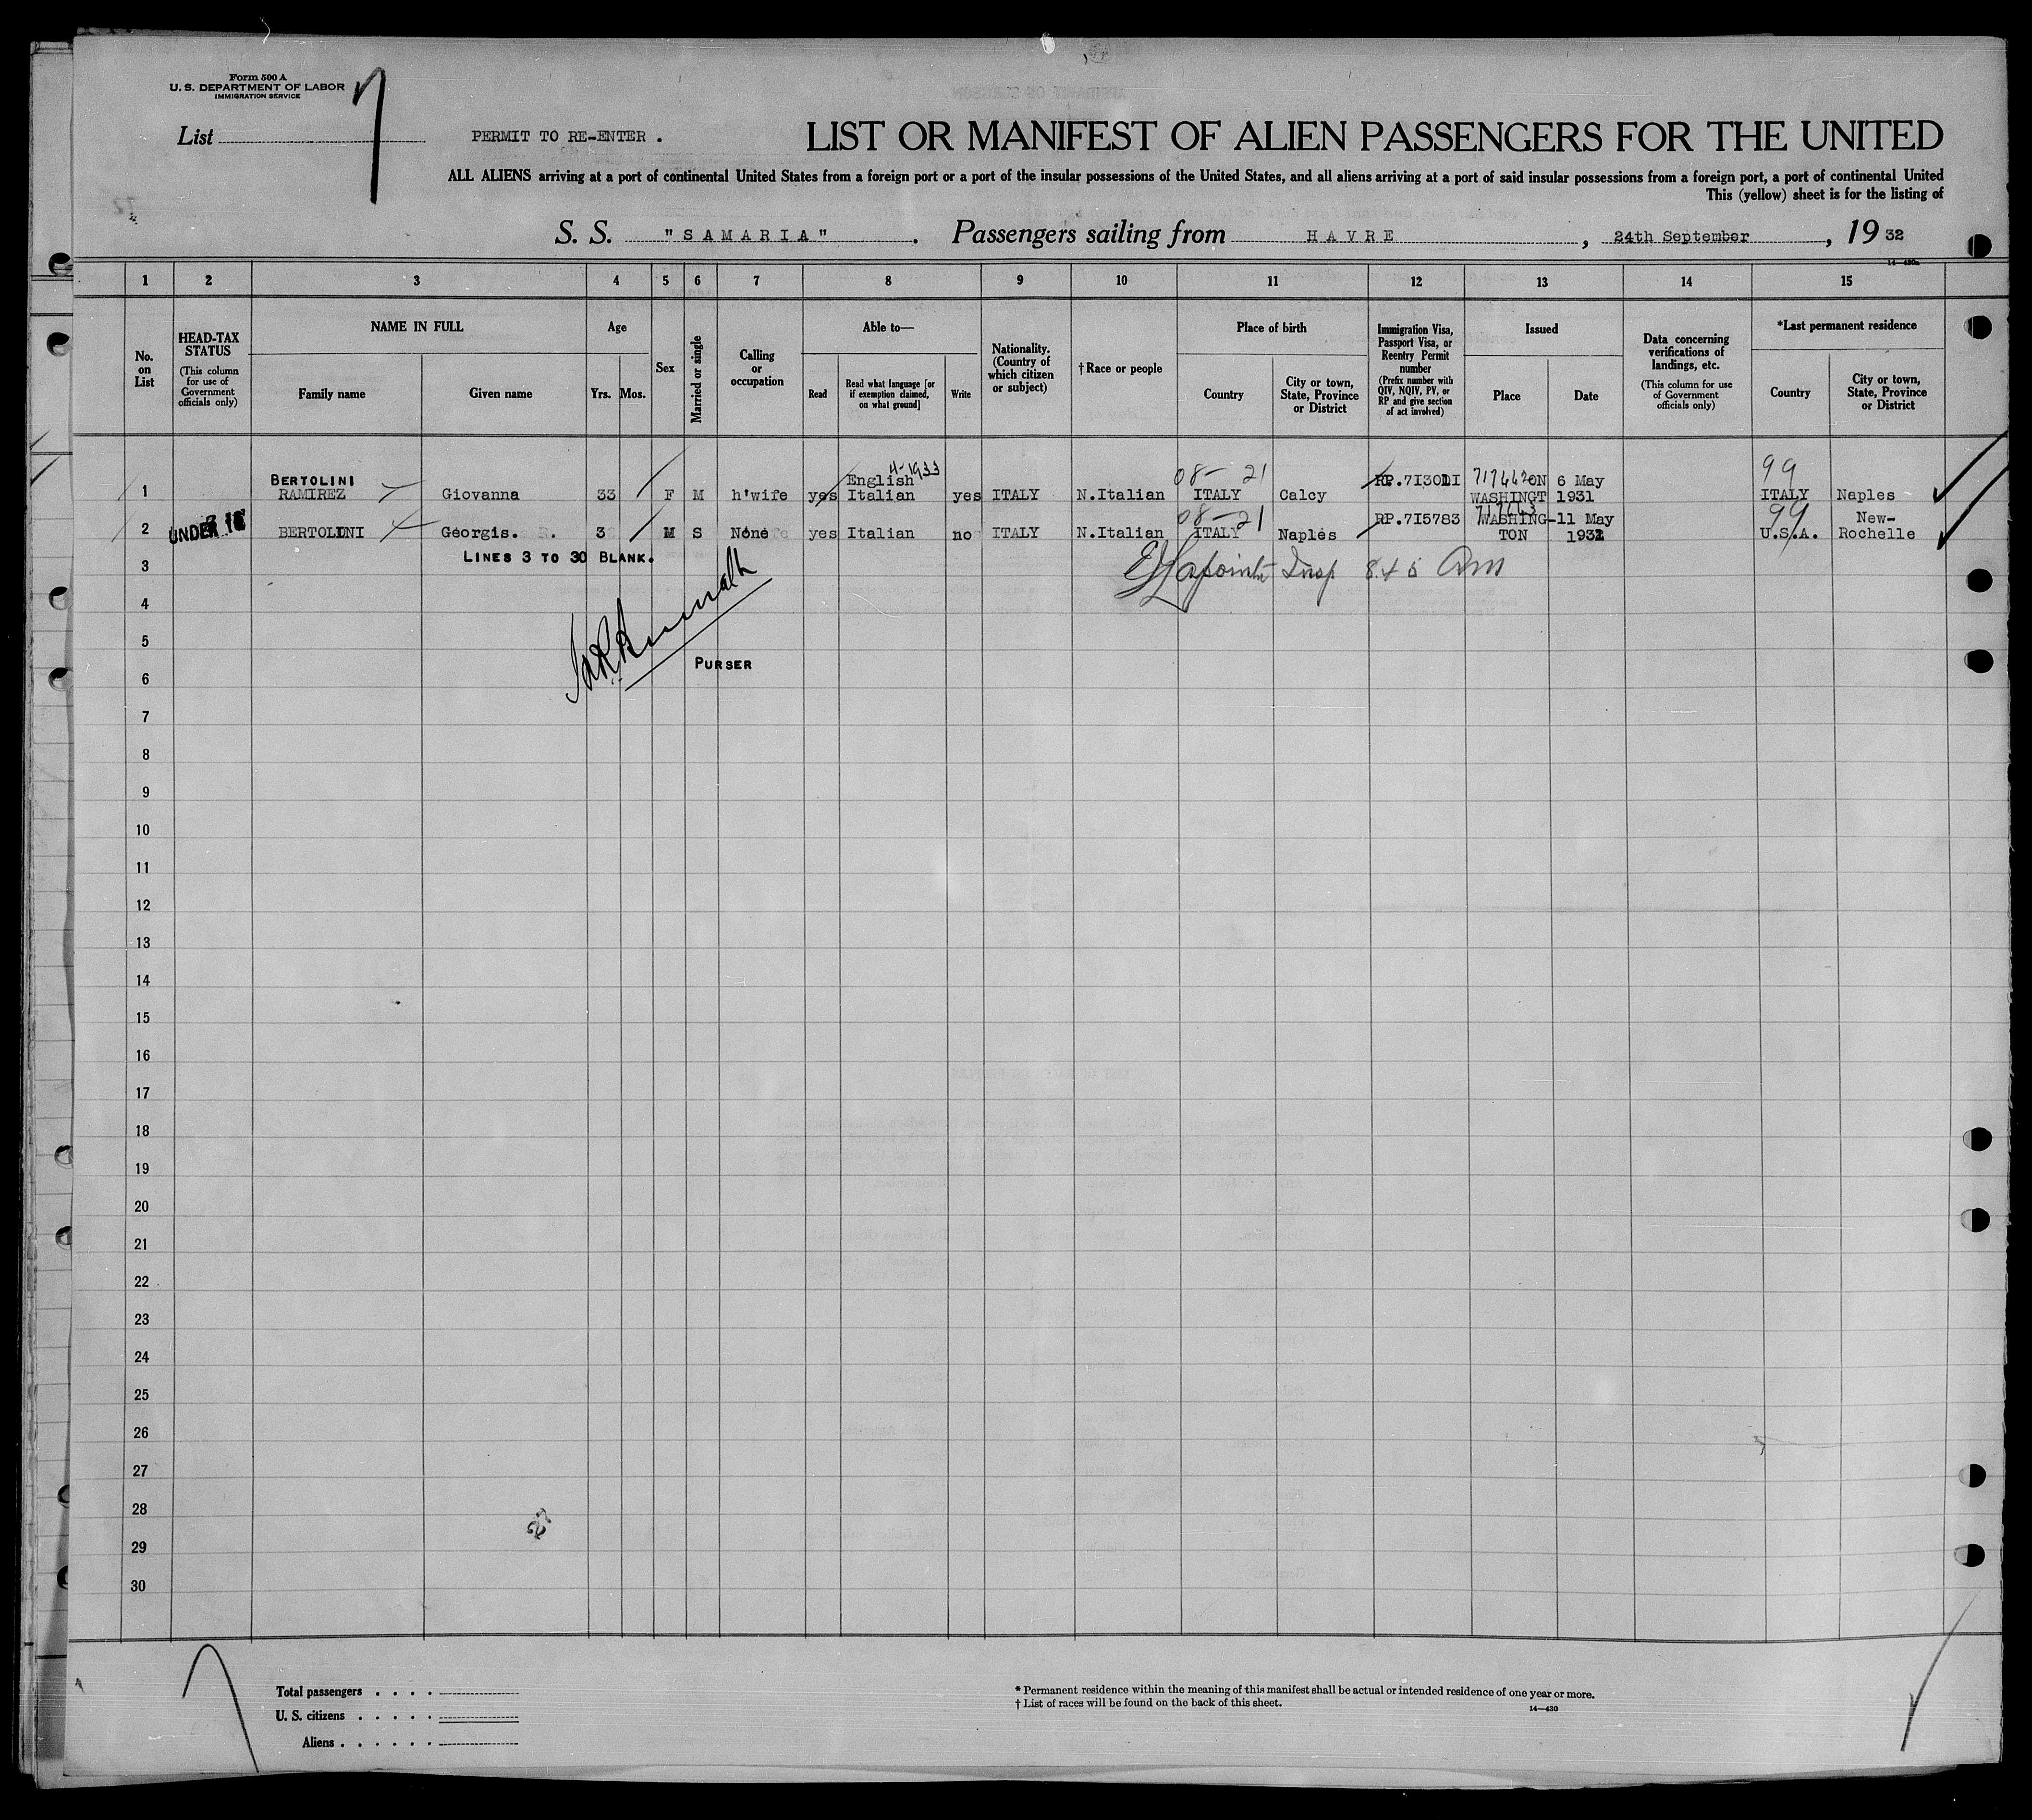 Form 500 A
U. S. DEPARTMENT OF LABOR
IMMIGRATION SERVICE
List 7
PERMIT TO RE-ENTER .
LIST OR MANIFEST OF ALIEN PASSENGERS FOR THE UNITED
ALL ALIENS arriving at a port of continental United States from a foreign port or a port of the insular possessions of the United States, and all aliens arriving at a port of said insular possessions from a foreign port, a port of continental United
This (yellow) sheet is for the listing of
S. S. "SAMARIA" . Passengers sailing from HAVRE , 24th September , 19 32
14—430a
1 2 3 4 5 6 7 8 9 10 11 12 13 14 15
No. on List
HEAD-TAX STATUS (This column for use of Government officials only)
NAME IN FULL
Family name
Given name
Age
Yrs. Mos.
Sex
Married or single
Calling or occupation
Able to—
Read
Read what language [or if exemption claimed, on what ground]
Write
Nationality. (Country of which citizen or subject)
†Race or people
Place of birth
Country
City or town, State, Province or District
Immigration Visa, Passport Visa, or Reentry Permit number (Prefix number with QIV, NQIV, PV, or RP and give section of act involved)
Issued
Place
Date
Data concerning verifications of landings, etc. (This column for use of Government officials only)
*Last permanent residence
Country
City or town, State, Province or District
BERTOLINI English 4-1933 08-21 717442 ON 6 May 99
1 RAMIREZ Giovanna 33 F M h'wife yes Italian yes ITALY N.Italian ITALY Calcy WASHINGT 1931 ITALY Naples
08-21 RP.715783 717443 WASHING-11 May 99 New-
2 UNDER 16 BERTOLINI Georgis. 3 M S None yes Italian no ITALY N.Italian ITALY Naples TON U.S.A. Rochelle
LINES 3 TO 30 BLANK.
3
Lapointe Insp 8+5 am
4
5
PURSER
6
7
8
9
10
11
12
13
14
15
16
17
18
19
20
21
22
23
24
25
26
27
28
29
30
Total passengers . . . .
U. S. citizens . . . . .
Aliens . . . . . .
* Permanent residence within the meaning of this manifest shall be actual or intended residence of one year or more.
† List of races will be found on the back of this sheet.
14—430